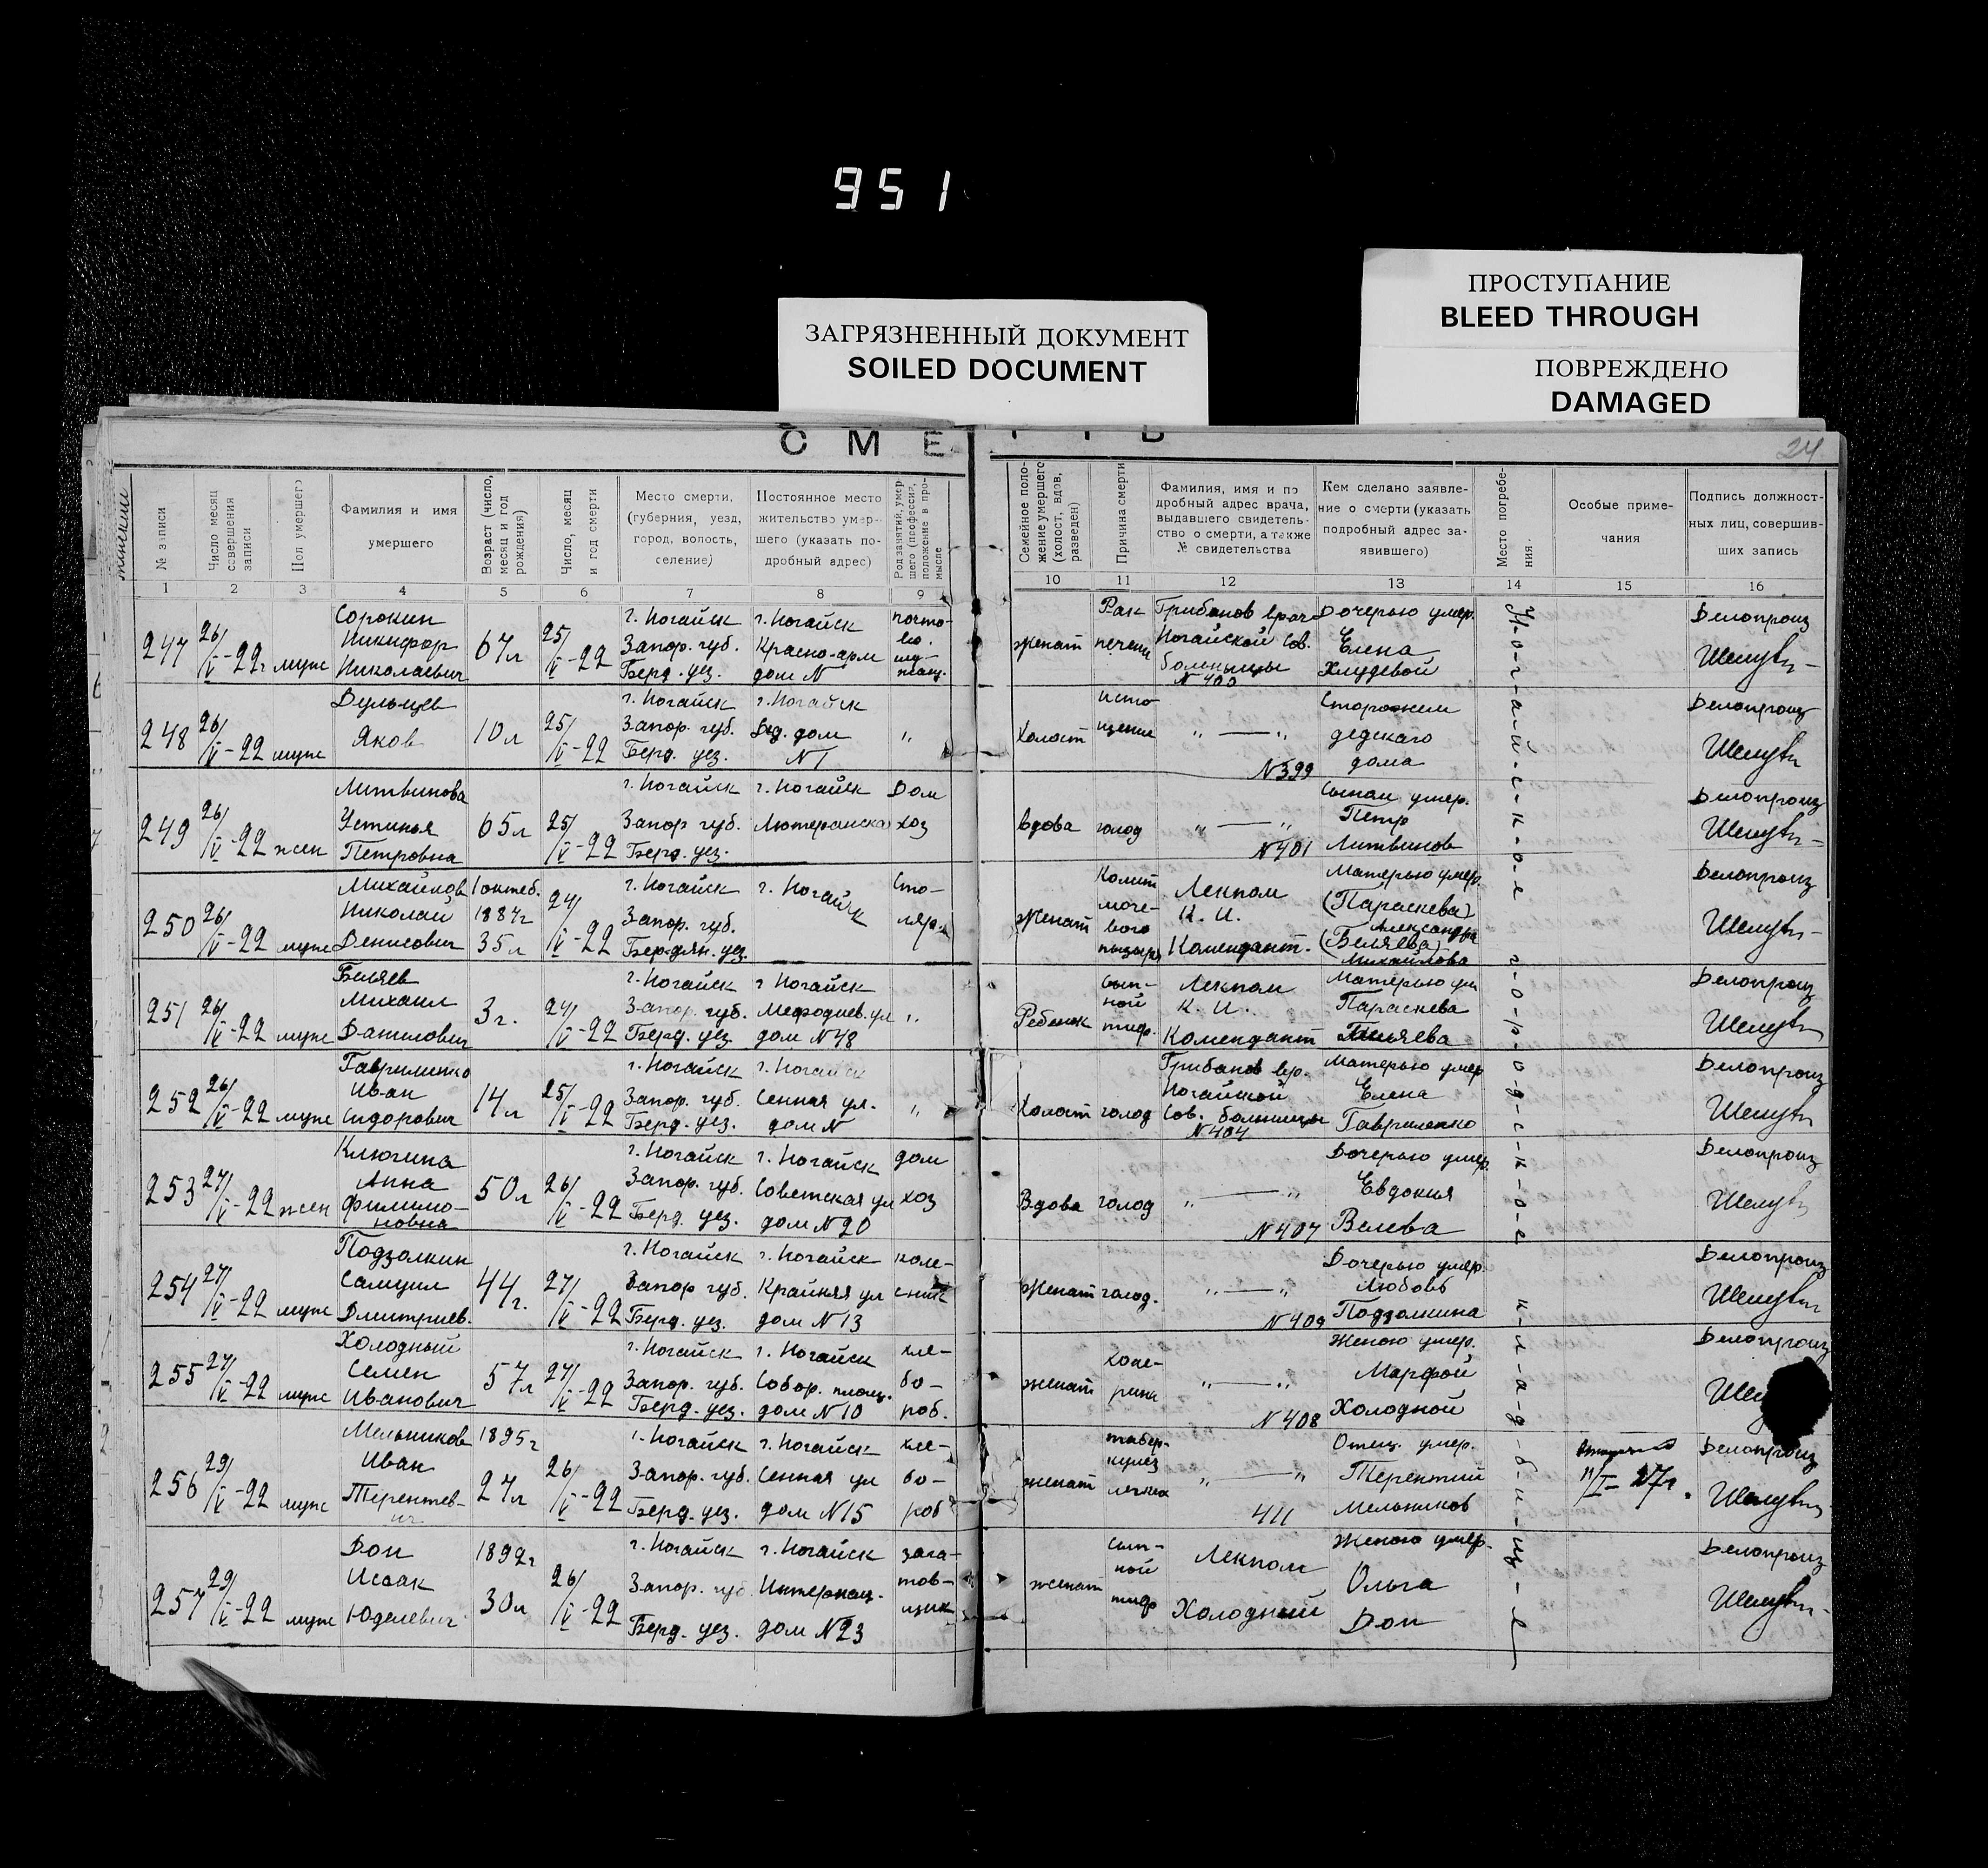 951
ПРОСТУПАНИЕ
BLEED THROUGH
ЗАГРЯЗНЕННЫЙ ДОКУМЕНТ
SOILED DOCUMENT
ПОВРЕЖДЕНО
DAMAGED
СМЕ
24
№ записи
Число месяц совершения записи
Пол умершего
Фамилия и имя умершего
Возраст (число, месяц и год рождения)
Число, месяц и год смерти
Место смерти, (губерния, уезд, город, волость, селение)
Постоянное место жительство умершего (указать подробный адрес)
Род занятий, умершего (профессия, положение в промысле
Семейное положение умершего (холост, вдов, разведен)
Причина смерти
Фамилия, имя и подробный адрес врача, выдавшего свидетельство о смерти, а также № свидетельства
Кем сделано заявление о смерти (указать подробный адрес заявившего)
Место погребения.
Особые примечания
Подпись должностных лиц, совершивших запись
1 2 3 4 5 6 7 8 9 10 11 12 13 14 15 16
247 26/V-22г муж
Сорокин
Никифор
Николаевич
67л
25/V-22
г. Ногайск
Запор. губ.
Берд. уез.
г. Ногайск
Красно-арм
дом N
женат
Рак
печени
Грибанов врач
Ногайской Сов.
больницы
N 400
Дочерью умер.
Елена
Хлудевой
Делопроиз
248 26/V-22 муж
Дульцев
Яков
10л
25/V-22
г. Ногайск
Запор. губ.
Берд. уез.
г. Ногайск
Дед. дом
N 1
"
Холост
исто
щение
" — "
N 399
Сторожем
дедскаго
дома
Делопроиз
249 26/V-22 жен
Литвинова
Устинья
Петровна
65л
25/V-22
г. Ногайск
Запор губ.
Берд. уез.
г. Ногайск
Лютеранска
Дом
хоз
вдова
голод
" — "
N 401
Сыном умер.
Петр
Литвинов
Делопроиз
250 26/V-22 муж
Михайлов
Николай
Денисович
1 октеб.
1887г
35л
24/V-22
г. Ногайск
Запор. губ.
Бердян. уез.
г. Ногайск
Сто-
ляр
Женат
моче-
вого
пузыря
Лекпом
К. И.
Комендант.
Матерью умер.
(Параскева)
Александра
(Беляева)
Михайлова
Делопроиз
251 26/V-22 муж
Беляев
Михаил
Данилович
3г.
24/V-22
г. Ногайск
Запор. губ.
Берд. уез.
г Ногайск
Мефодиев. ул
дом N 48
"
Ребенок
сып-
ной
тиф.
Лекпом
К. И.
Комендант
Матерью ум
Параскева
Беляева
Делопроиз
252 26/V-22 муж
Гавриленко
Иван
Сидорович
14л
25/V-22
г. Ногайск
Запор. губ.
Берд. уез.
г. Ногайск
Сенная ул.
дом N
"
Холост
голод
Грибанов вр.
Ногайской
Сов. больницы
N 404
Матерью умер
Елена
Гавриленко
Делопроиз
253 27/V-22 жен
Клюгина
Анна
Филимо-
новна
50л
26/V-22
г. Ногайск
Запор. губ.
Берд. уез.
г. Ногайск
Советская ул
дом N 20
дом
хоз
Вдова
голод
" — "
N 407
Дочерью умер.
Евдокия
Велева
Делопроиз
254 27/V-22 муж
Подзолкин
Самуил
Дмитриев.
44г.
27/V-22
г. Ногайск
Запор губ.
Берд. уез.
г. Ногайск
Крайняя ул
дом N 13
коле-
сник
Женат
голод.
" — "
N 409
Дочерью умер.
Любовь
Подзолкина
Делопроиз
255 27/V-22 муж
Холодный
Семен
Иванович
57л
27/V-22
г. Ногайск
Запор. губ.
Берд. уез.
г. Ногайск
Собор. площ.
дом N 10
хле-
бо-
роб.
женат
холе-
рина
" — "
N 408
Женою умер.
Марфой
Холодной
Делопроиз
256 29/V-22 муж
Мельников
Иван
Терентев-
ич
1895г
27л
26/V-22
г. Ногайск
Запор. губ.
Берд. уез.
г. Ногайск
Сенная ул
дом N 15
хле-
бо-
роб
женат
тубер-
кулез
легких
" — "
411
Отец. умер.
Терентий
Мельников
11/I-27г.
Делопроиз
257 29/V-22 муж
Дон
Исаак
Юделевич
1892г
30л
26/V-22
г. Ногайск
Запор. губ
Берд. уез.
г. Ногайск
Интернац.
дом N 23
заго-
тов-
щик
женат
сып-
ной
тиф
Лекпом
Холодный
Женою умер.
Ольга
Дон
Делопроиз
Н-о-г-а-й-с-к-о-е г-о-р-о-д-с-к-о-е к-л-а-д-б-и-щ-е